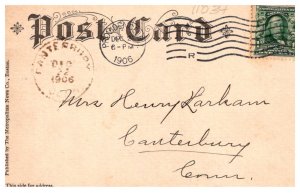 11034
Post Card
DEC
6-PM
1906
R
CANTERBURY
DEC
1906
Mrs Henry Larham
Canterbury
Conn.
Published by The Metropolitan News Co., Boston.
This side for address.